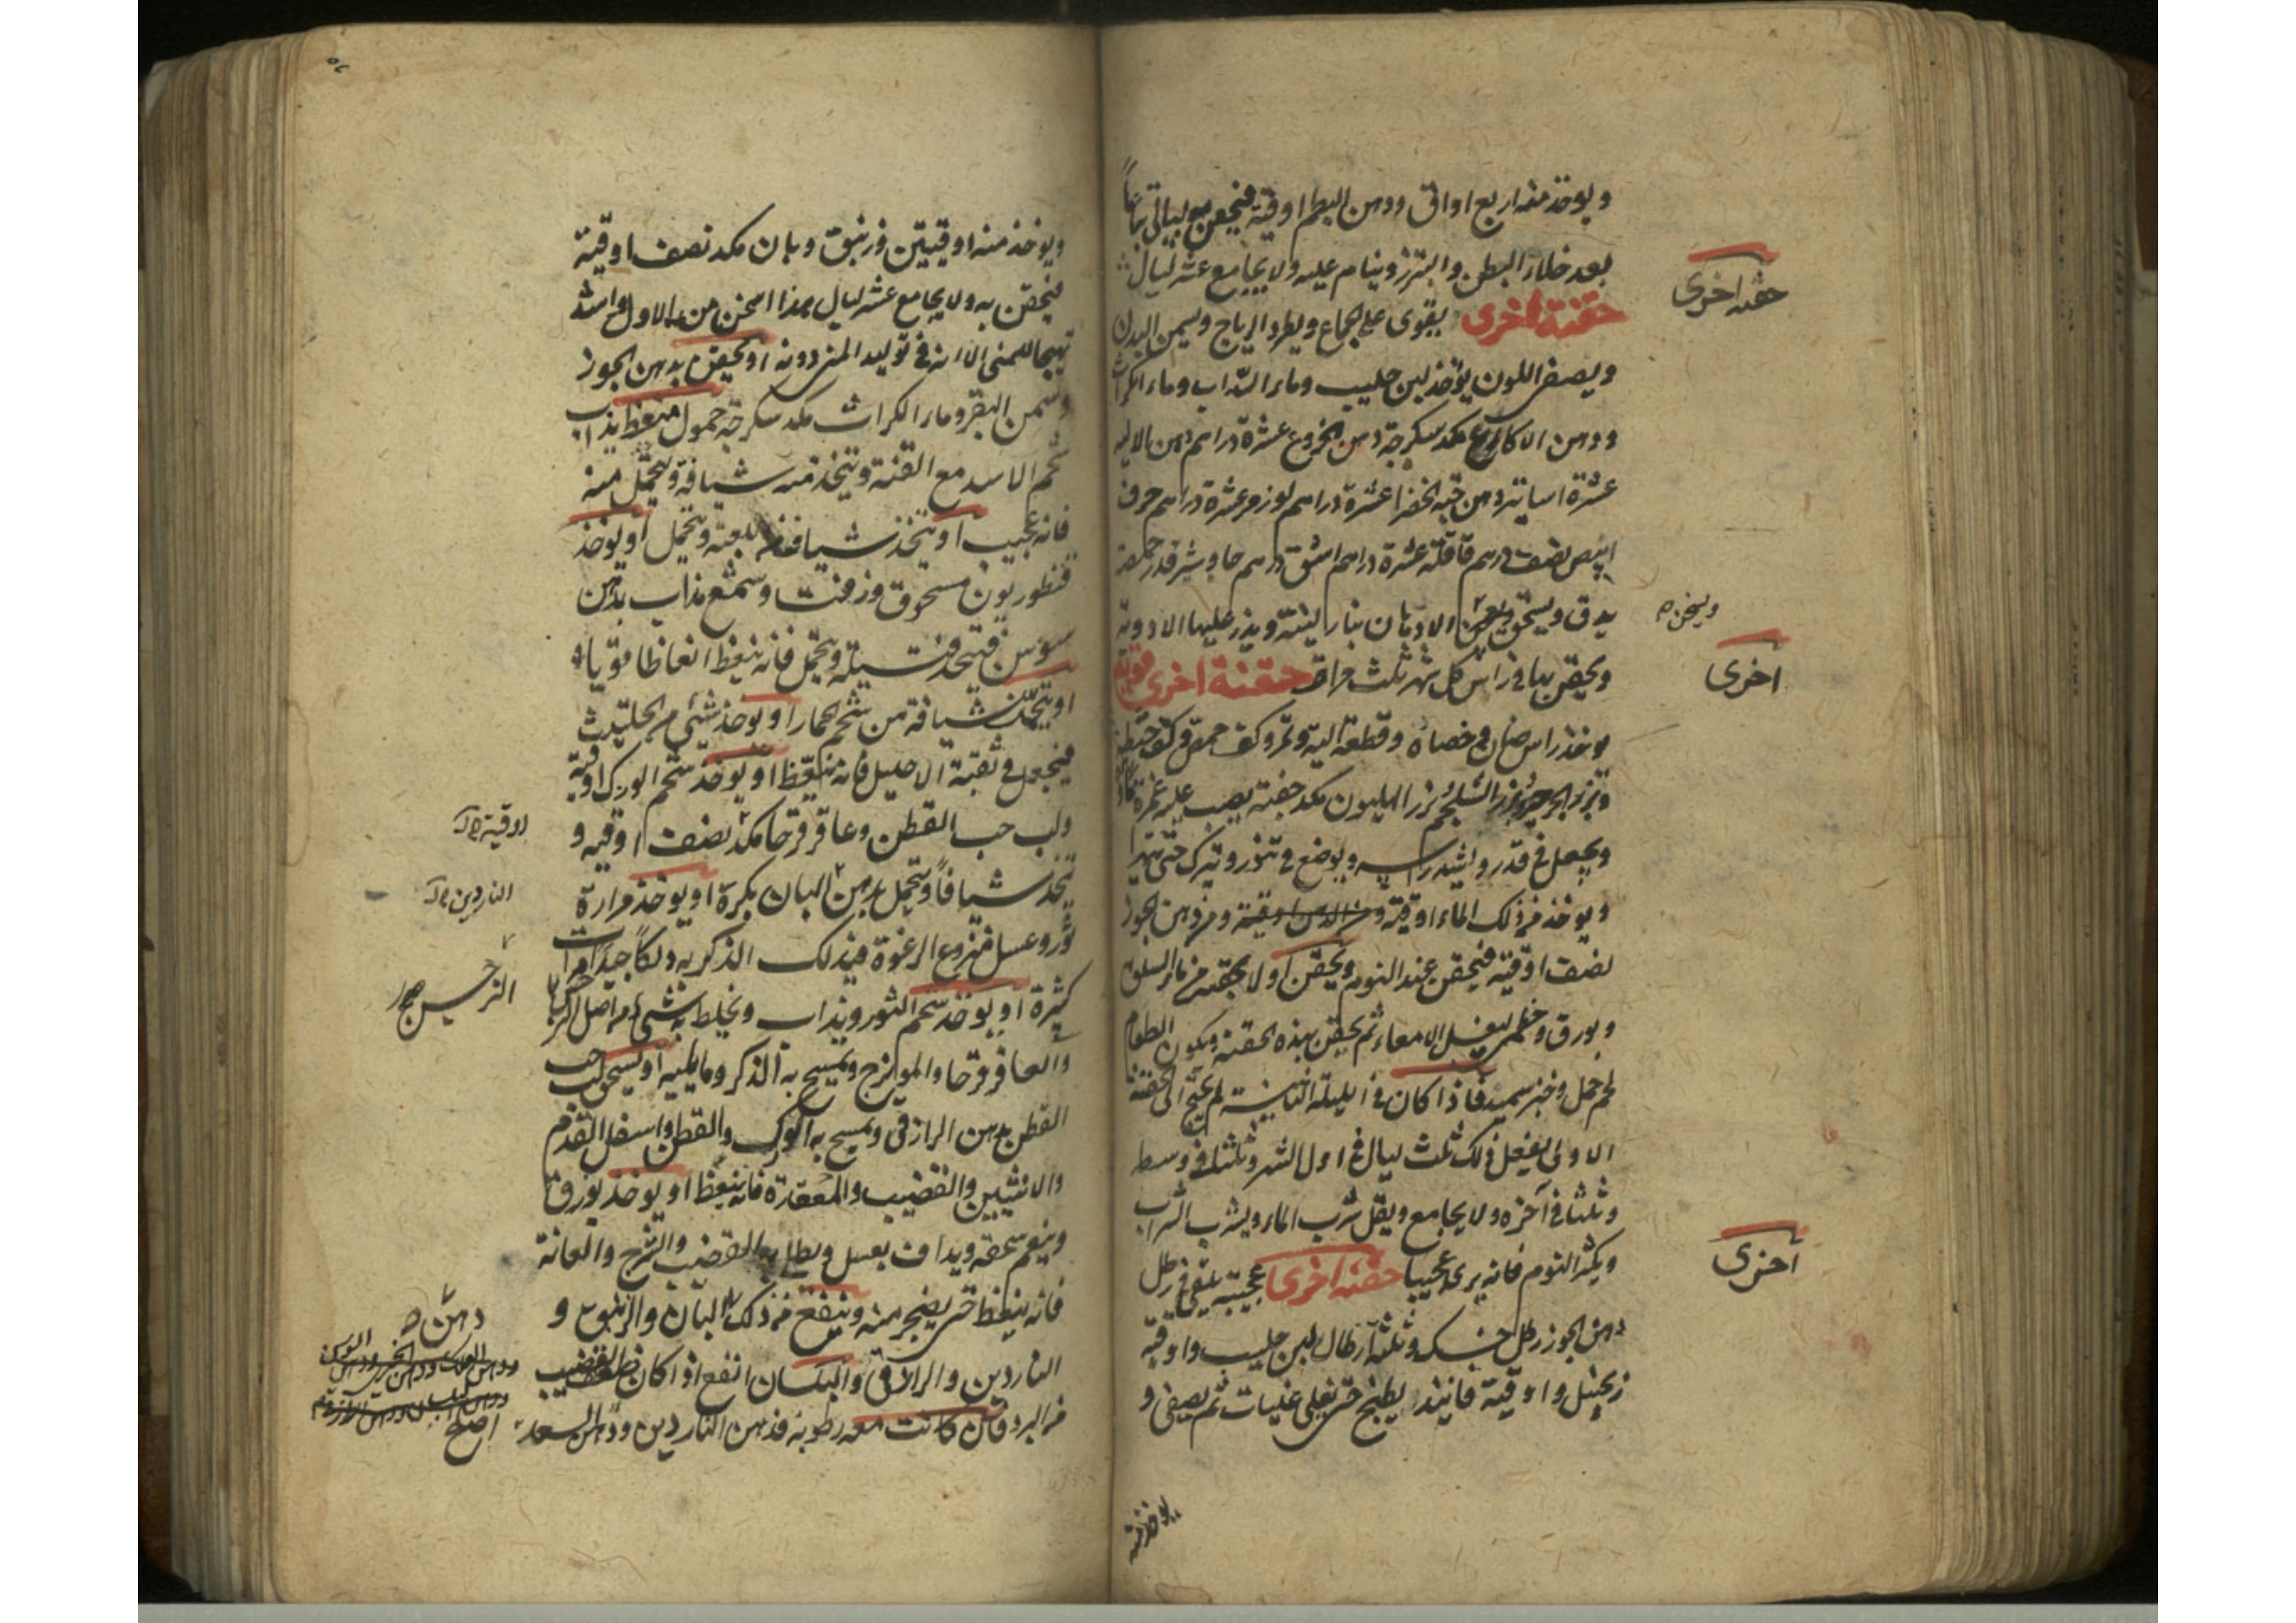 ويوخذ منه اربع اواق ودهن البطم اوقية فيحقن به ليالي تباعاً
بعد خلاء البطن والتبرز وينام عليه ولا يجامع عشر ليال
حقنة اخرى
حقنة اخرى يقوى على الجماع ويطرد الرياح ويسمن البدن
ويصفى اللون يوخذ لبن حليب وماء السذاب وماء الكراث
ودهن الاكارع مكد سكرجة دهن الخروع عشرة دراهم دهن الاليه
عشرة اساتير دهن حبه الخضرا عشرة دراهم لوز مر عشرة دراهم حرف
ابيض نصف درهم قاقلة عشرة دراهم اشق درهم جاوشير قدر حمصة
يدق ويسحق الادهان بنار لينة ويذر عليها الادوية
ويسخن
ويحقن بها في راس كل شهر ثلث مرات حقنة اخرى قوية
اخرى
يوخذ راس ضان وخصاه وقطعة اليه وتمر وكف حمص وكف حنطة
وبزر الجرجير وبزر الشلجم بزر الهليون مكد حفنة يصب عليه غمرة ماء
ويجعل في قدر واشد راسه ويوضع في تنور وتترك حتى تتهرا
ويوخذ من ذلك الماء اوقية ومن الدهن اوقية ومن دهن الجوز
نصف اوقية فيحقن عند النوم ويحقن اولا بحقنة من ماء السلق
وبورق وخطمى ليغسل الامعاء ثم يحقن بهذه الحقنة ويكون الطعام
لحم حمل وخبز سميد فاذا كان في الليلة الثانية لم يحتج الى الحقنة
الاولى يفعل ذلك ثلث ليال في اول الشهر وثلثا في وسطه
وثلثا في آخره ولا يجامع ويقل شرب الماء ويشرب الشراب
ويكثر النوم فانه يرى عجيبا حقنة اخرى عجيبة يلقى في رطل
اخرى
دهن الجوز رطل حسك وثلثة ارطال لبن حليب واوقية
زنجبيل واوقية فانيذ يطبخ حتى يغلى غليات ثم يصفى و
يوخذ منه
ويوخذ منه اوقيتين وزنبق وبان مكد نصف اوقية
فيحقن به ولا يجامع عشر ليال هذا اسخن من الاول واشد
تهيجا للمنى الا انه في توليد المنى دونه او يحقن بدهن الجوز
وسمن البقر وماء الكراث مكد سكرجة حمول منعظ يذاب
شحم الاسد مع القنة وتتخذ منه شيافة ويتحمل منه
فانه عجيب او يتخذ شيافة للعبة ويتحمل او يوخذ
قنطوريون مسحوق وزفت وشمع مذاب بدهن
سوسن فيتخذ فتيلة ويتحمل فانه ينعظ انعاظا قويا
او يتخذ شيافة من شحم الحمار او يوخذ شئ من الحلتيث
فيجعل في ثقبة الاحليل فانه منعظ او يوخذ شحم الورك اوقية
ولب حب القطن وعاقرقرحا مكد نصف اوقيه و
اوقية
يتخذ شيافاً ويتحمل بدهن البان بكرة او يوخذ مرارة
الناردين
ثور وعسل منزوع الرغوة فيدلك الذكر به دلكاً جيداً مرات
كثيرة او يوخذ شحم الثور ويذاب ويخلط به شئ من اصل النرجس
النرجس
والعاقرقرحا والمويزج ويمسح به الذكر وما يليه او يسحق لب حب
القطن بدهن الرازقى ويمسح به الورك والقطن واسفل القدم
والانثيين والقضيب والمقعدة فانه ينعظ او يوخذ بورق
وينعم سحقه ويداف بعسل ويطلى به القضيب والشرج والعانة
فانه ينعظ حتى يضجر منه وينفع من ذلك البان والزنبق و
دهن
الناردين والرازقى والبلسان انفع اذ كان ضعف القضيب
من البرد فان كانت معه رطوبة فدهن الناردين ودهن السعد
اصلح